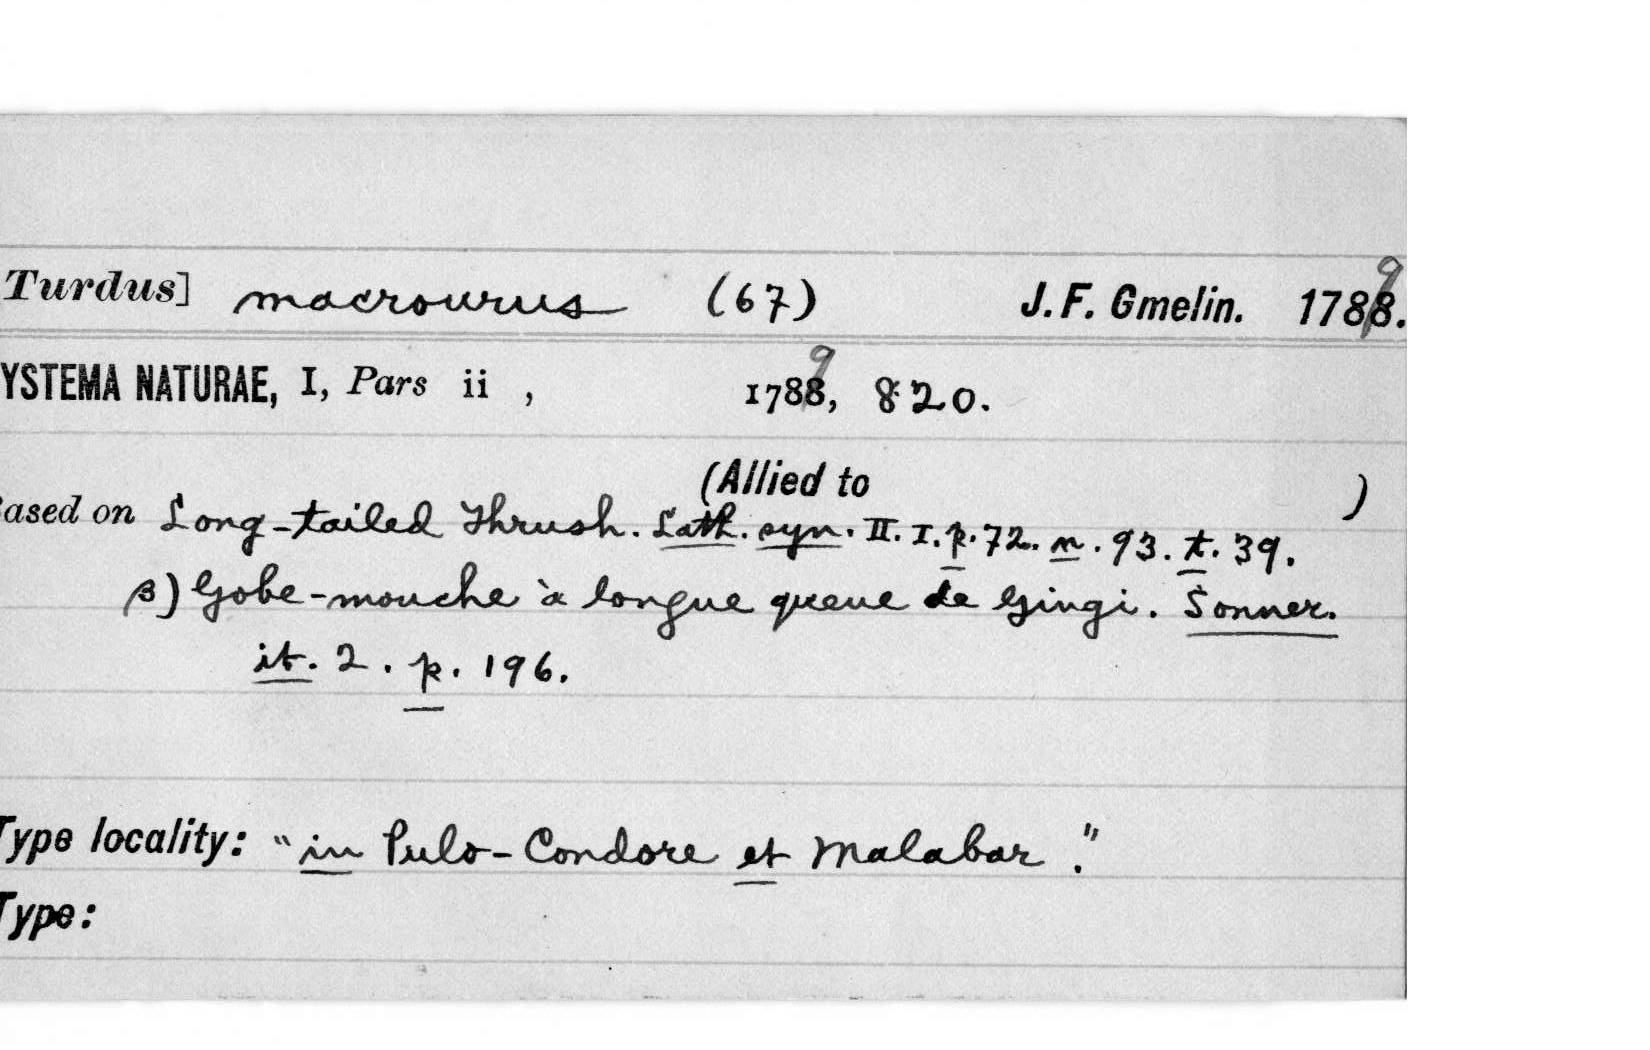 Turdus] macrourus (67) J. F. Gmelin. 1788. 9
YSTEMA NATURAE, I, Pars ii , 1788, 9 820.
(Allied to )
ased on Long-tailed Thrush. Lath. syn. II. I. p. 72. n. 93. t. 39.
β) Gobe-mouche à longue queue de Gingi. Sonner.
it. 2. p. 196.
Type locality: "in Pulo-Condore et Malabar."
Type: